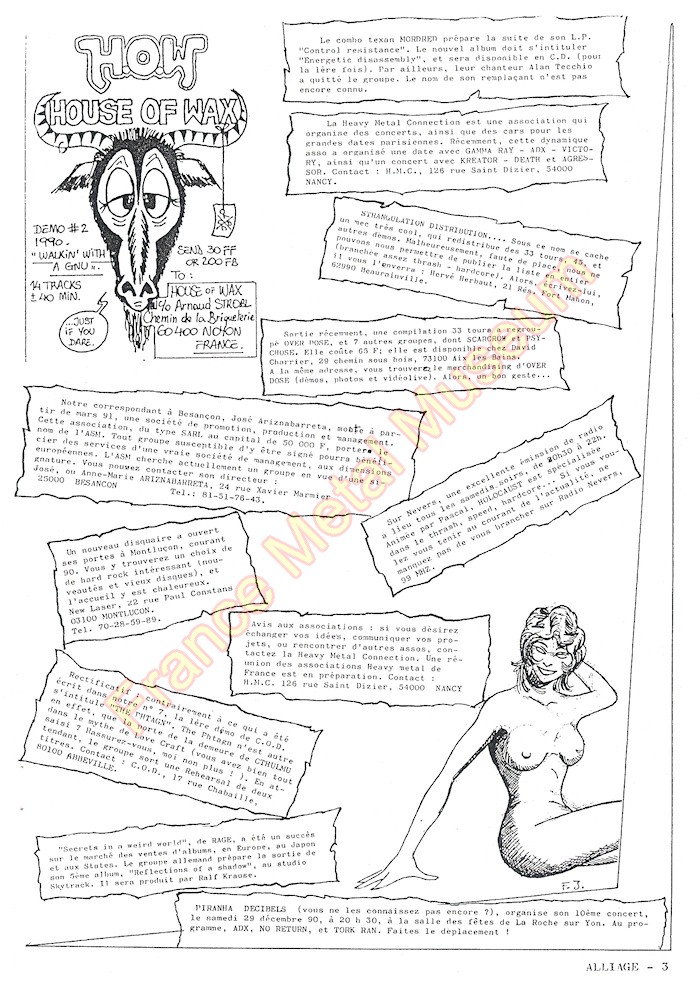 H.O.W
HOUSE OF WAX
DEMO #2
1990.
"WALKIN' WITH
A GNU".
14 TRACKS
± 40 MIN.
...JUST
IF YOU
DARE.
SEND 30 FF
OR 200 FB
TO:
HOUSE OF WAX
c/o Arnaud STROBL
Chemin de la Briqueterie
60400 NOYON
FRANCE.
Le combo texan MORDRED prépare la suite de son L.P.
"Control resistance". Le nouvel album doit s'intituler
"Energetic disassembly", et sera disponible en C.D. (pour
la 1ère fois). Par ailleurs, leur chanteur Alan Tecchio
a quitté le groupe. Le nom de son remplaçant n'est pas
encore connu.
La Heavy Metal Connection est une association qui
organise des concerts, ainsi que des cars pour les
grandes dates parisiennes. Récemment, cette dynamique
asso a organisé une date avec GAMMA RAY - ADX - VICTO-
RY, ainsi qu'un concert avec KREATOR - DEATH et AGRES-
SOR. Contact : H.M.C., 126 rue Saint Dizier, 54000
NANCY.
STRANGULATION DISTRIBUTION.... Sous ce nom se cache
un mec très cool, qui redistribue des 33 tours, 45, et
autres démos. Malheureusement, faute de place, nous ne
pouvons nous permettre de publier la liste en entier
(branchée assez thrash - hardcore). Alors, écrivez-lui,
il vous l'enverra : Hervé Herbaut, 21 Rés. Fort Mahon,
62990 Beaurainville.
Sortie récemment, une compilation 33 tours a regrou-
pé OVER DOSE, et 7 autres groupes, dont SCARCROW et PSY-
CHOSE. Elle coûte 65 F; elle est disponible chez David
Charrier, 29 chemin sous bois, 73100 Aix les Bains.
A la même adresse, vous trouverez le merchandising d'OVER
DOSE (démos, photos et vidéolive). Alors, un bon geste...
Notre correspondant à Besançon, José Ariznabarreta, monte à par-
tir de mars 91, une société de promotion, production et management.
Cette association, du type SARL au capital de 50 000 F, portera le
nom de l'ASM. Tout groupe susceptible d'y être signé pourra bénéfi-
cier des services d'une vraie société de management, aux dimensions
européennes. L'ASM cherche actuellement un groupe en vue d'une si-
gnature. Vous pouvez contacter son directeur :
José, ou Anne-Marie ARIZNABARRETA, 24 rue Xavier Marmier
25000 BESANCON
Tel.: 81-51-76-43.
Sur Nevers, une excellente émission de radio
a lieu tous les samedis soirs, de 20h30 à 22h.
Animée par Pascal, HOLOCAUST est spécialisée
dans le thrash, speed, hardcore... Si vous vou-
lez vous tenir au courant de l'actualité, ne
manquez pas de vous brancher sur Radio Nevers,
99 MHZ.
Un nouveau disquaire a ouvert
ses portes à Montluçon, courant
90. Vous y trouverez un choix de
de hard rock intéressant (nou-
veautés et vieux disques), et
l'accueil y est chaleureux.
New Laser, 22 rue Paul Constans
03100 MONTLUCON.
Tel. 70-28-59-89.
Avis aux associations : si vous désirez
échanger vos idées, communiquer vos pro-
jets, ou rencontrer d'autres assos, con-
tactez la Heavy Metal Connection. Une ré-
union des associations Heavy metal de
France est en préparation. Contact :
H.M.C. 126 rue Saint Dizier, 54000 NANCY
Rectificatif : contrairement à ce qui a été
écrit dans notre n° 7, la 1ère démo de C.O.D.
s'intitule "THE PHTAGN". The Phtagn n'est autre
en effet, que la porte de la demeure de CTHULHU
dans le mythe de Love Craft (vous avez bien tout
saisi ? Rassurez-vous, moi non plus ! ). En at-
tendant, le groupe sort une Rehearsal de deux
titres. Contact : C.O.D., 17 rue Chabaille,
80100 ABBEVILLE.
"Secrets in a weird world", de RAGE, a été un succès
sur le marché des ventes d'albums, en Europe, au Japon
et aux States. Le groupe allemand prépare la sortie de
son 5ème album, "Reflections of a shadow", au studio
Skytrack. Il sera produit par Ralf Krause.
F.J.
PIRANHA DECIBELS (vous ne les connaissez pas encore ?), organise son 10ème concert,
le samedi 29 décembre 90, à 20 h 30, à la salle des fêtes de La Roche sur Yon. Au pro-
gramme, ADX, NO RETURN, et TORK RAN. Faites le deplacement !
ALLIAGE - 3
France Metal Museum